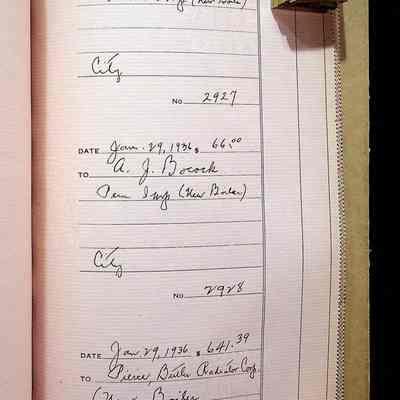 (New Boiler)
City
No 2927
DATE Jan. 29, 1936 $ 66.00
TO A. J. Bocock
Perm Imp (New Boiler)
City
No 2928
DATE Jan. 29, 1936 $ 641.39
TO Pierce, Butler Radiator Corp.
(New Boiler